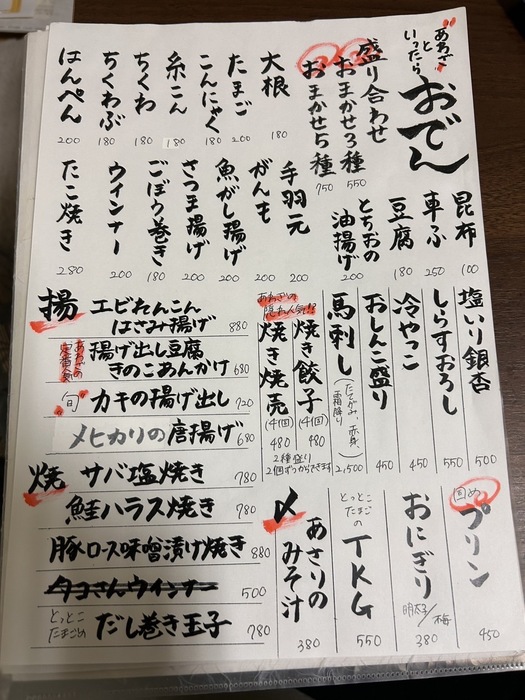 あらざと
いったら
おでん
盛り合わせ
おまかせ3種 550
おまかせ5種 750
大根 180
たまご 200
こんにゃく 180
糸こん 180
ちくわ 180
ちくわぶ 180
はんぺん 200
昆布 100
車ふ 250
豆腐 180
とちおの
油揚げ 200
手羽元 200
がんも 200
魚がし揚げ 200
さつま揚げ 200
ごぼう巻き 180
ウインナー 200
たこ焼き 280
塩いり銀杏 500
しらすおろし 550
冷やっこ 450
おしんこ盛り 450
馬刺し(たてがみ、赤身、霜降り) 2,500
隠れ人気!!
焼き餃子(4個) 480
焼き焼売(4個) 480
2種盛り
2個ずつからできます
揚
エビれんこん
はさみ揚げ 880
定番人気
揚げ出し豆腐
きのこあんかけ 680
旬 カキの揚げ出し 720
メヒカリの唐揚げ 680
焼 サバ塩焼き 780
鮭ハラス焼き 780
豚ロース味噌漬け焼き 880
タコさんウインナー 500
とっとこ
たまごの だし巻き玉子 780
固め プリン 450
おにぎり 明太子/梅 380
とっとこ
たまごの
TKG 550
〆 あさりの
みそ汁 380